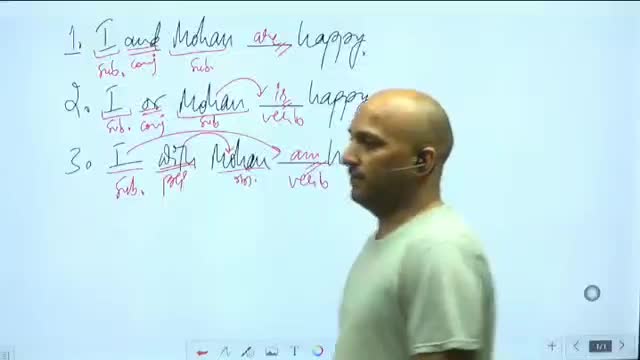 1. I and Mohan are happy.
sub. conj sub.
2. I or Mohan is happy
sub. conj sub verb
3. I with Mohan am h
sub. verb
1/1